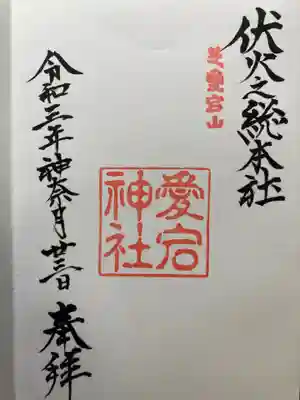 伏火之総本社
芝愛宕山
愛宕
神社
令和三年神奈月廿三日
奉拝